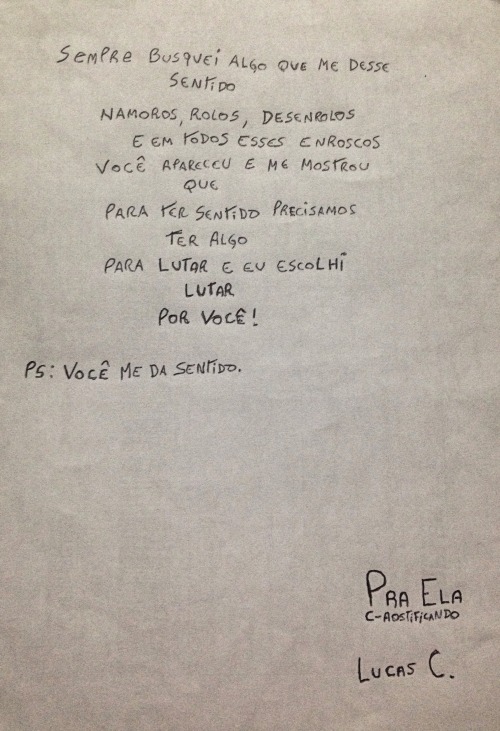 SEMPRE BUSQUEI ALGO QUE ME DESSE
SENTIDO
NAMOROS, ROLOS, DESENROLOS
E EM TODOS ESSES ENROSCOS
VOCÊ APARECEU E ME MOSTROU
QUE
PARA TER SENTIDO PRECISAMOS
TER ALGO
PARA LUTAR E EU ESCOLHI
LUTAR
POR VOCÊ!
PS: VOCÊ ME DA SENTIDO.
PRA ELA
C-AOSTIFICANDO
LUCAS C.